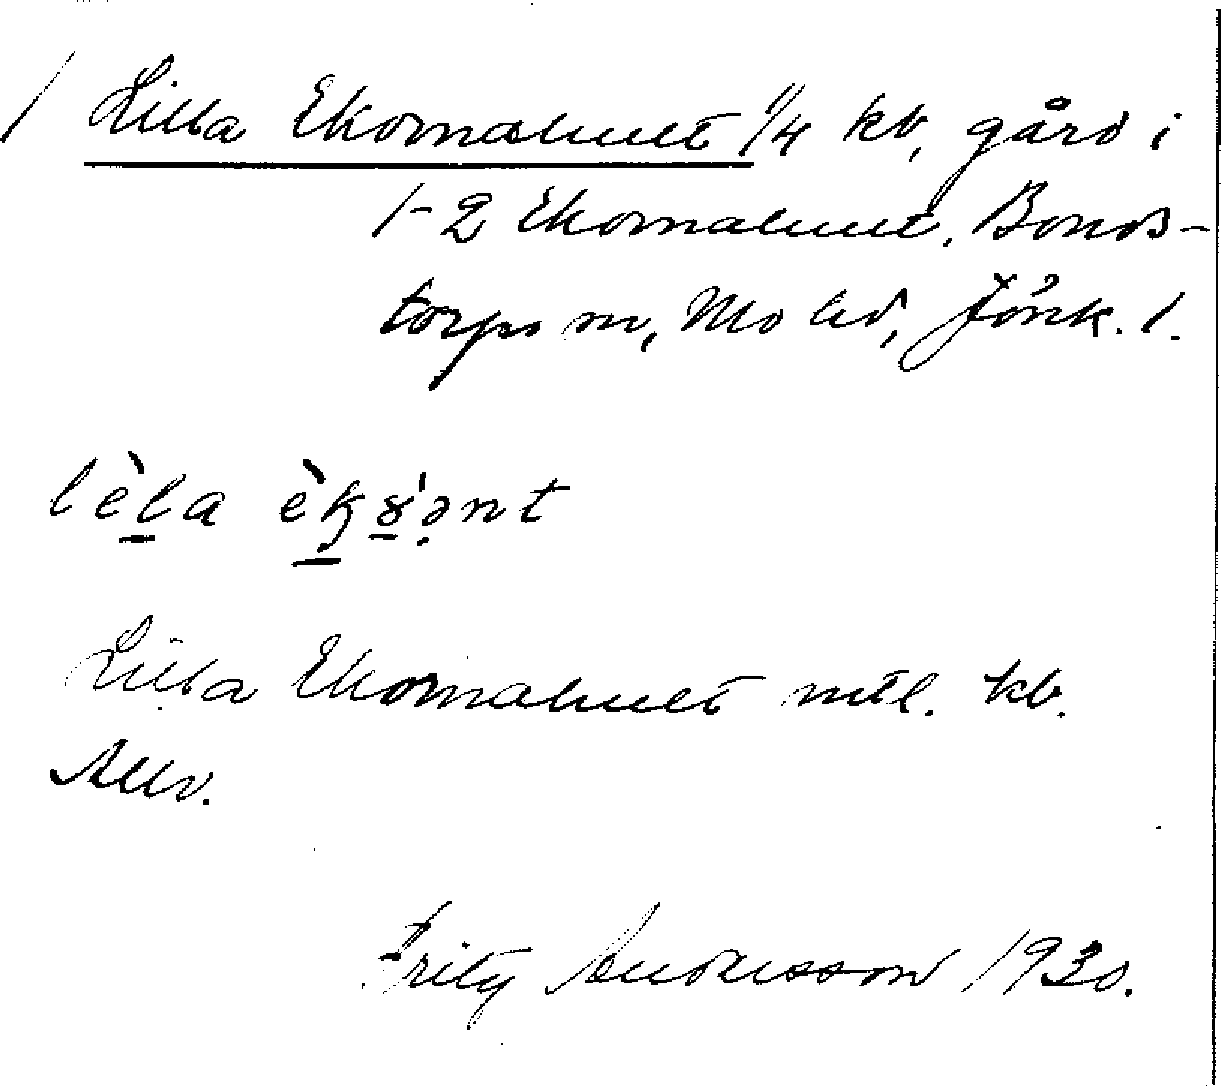 / Lilla Ekornahult 1/4 kb, gård i
1-2 Ekornahult, Bonds-
torps sn, Mo hd, Jönk. l.
lèla èkɤ̀ənt
Lilla Ekornahult mtl. kb.
Allv.
Fritz Andersson 1930.